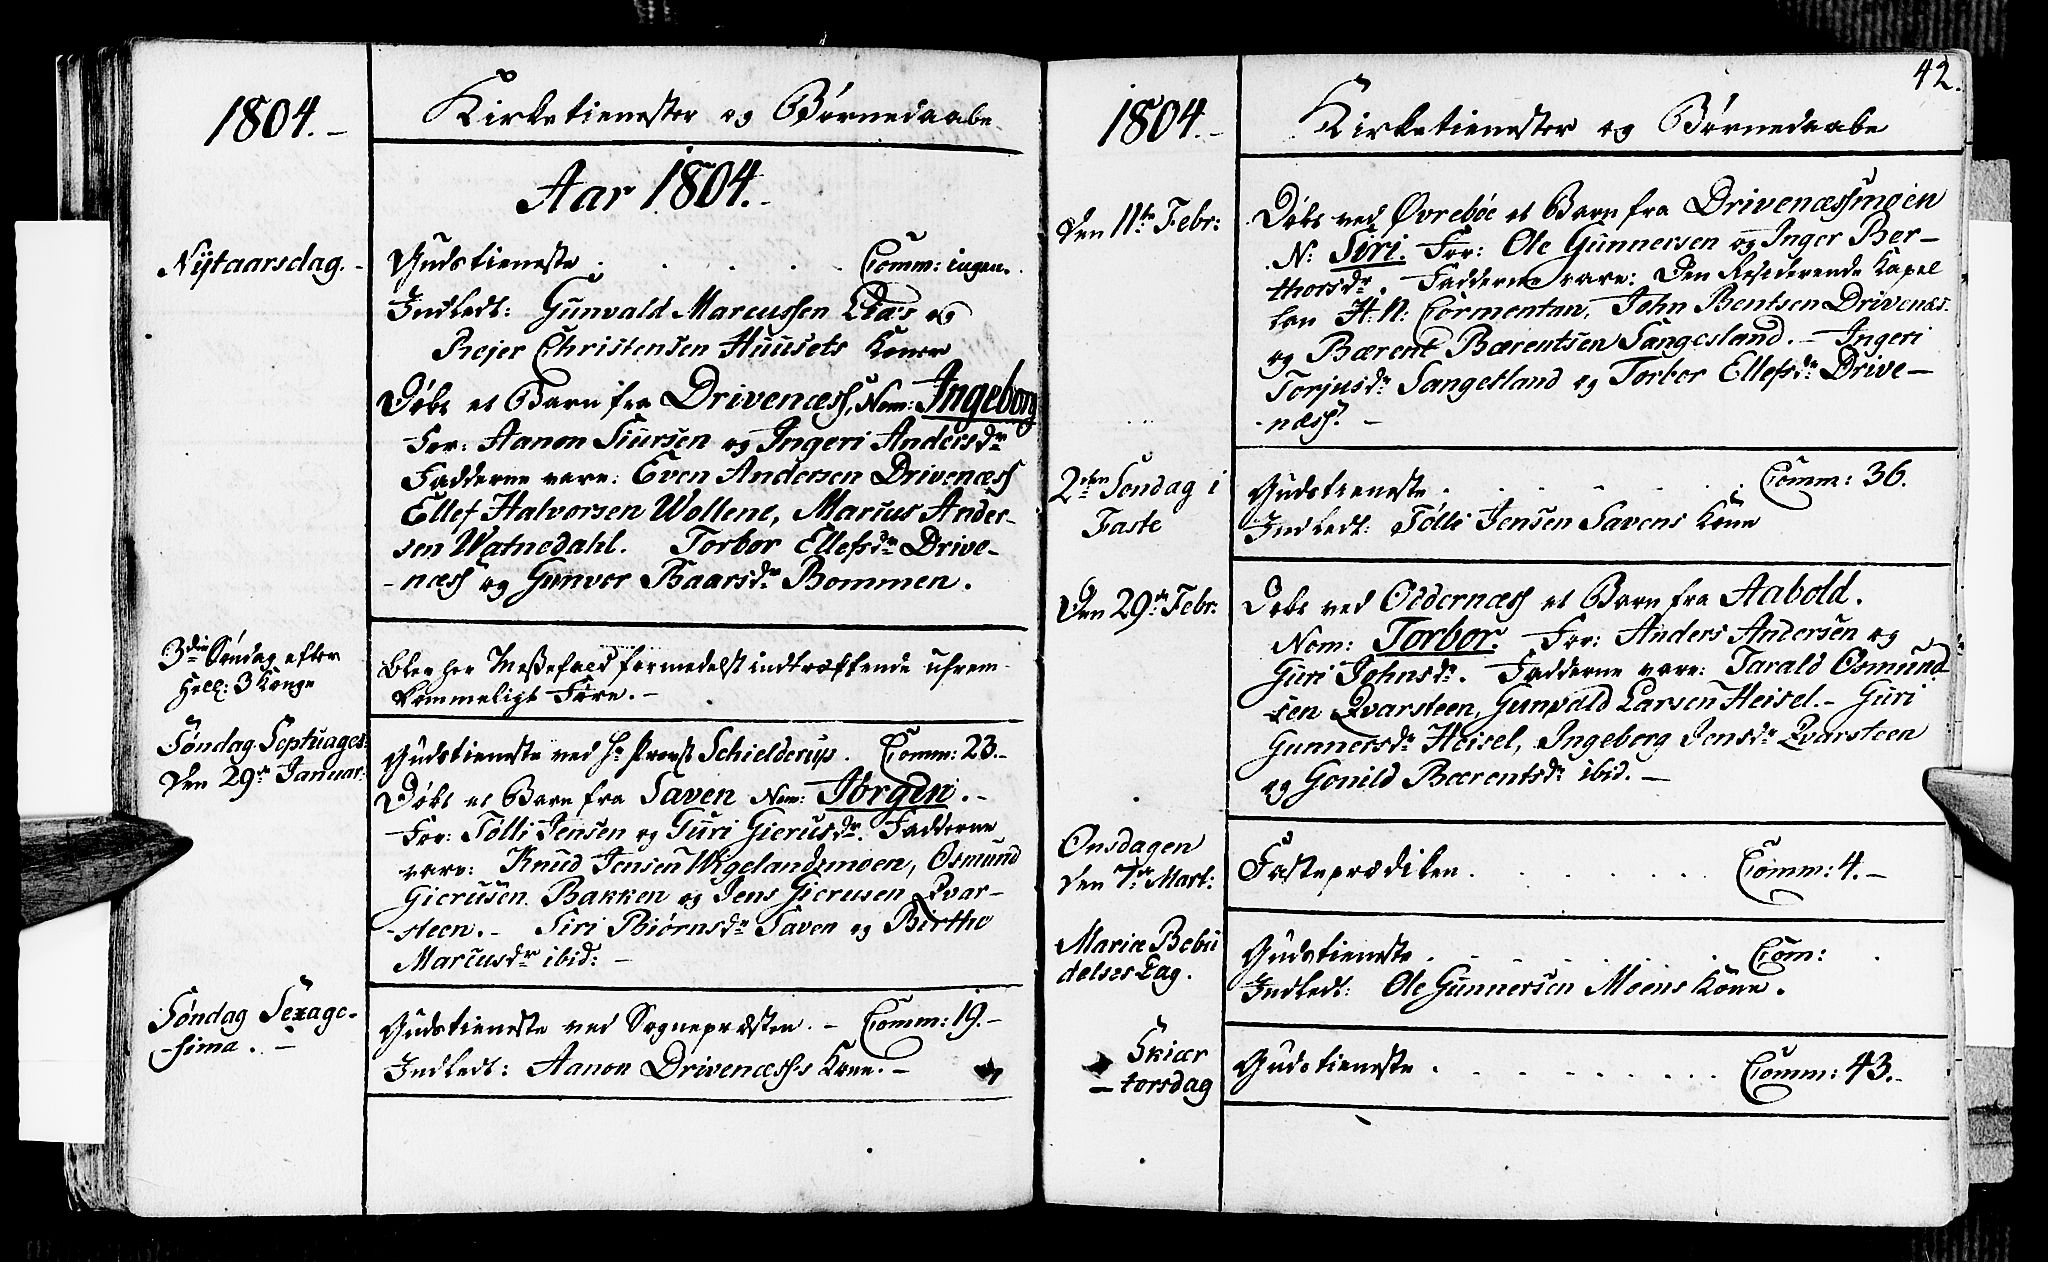 1804.
Kirketienester og Børnedaabe
Aar 1804.
Nÿtaarsdag.
Gudstieneste . . . . . Comm: ingen.
Indledt: Gunvald Marcussen Lia's og
Rejer Christensen Huusets Koner
Døbt et Barn fra Drivenæss, Nom: Ingeborg
For: Aanon Siursen og Ingeri Andersdr
Fadderne vare: Even Andersen Drivenæss
Ellef Halvorsen Wollene, Marcus Ander-
sen Watnedahl. Torbor Ellefsdr Drive-
-næss og Gunvor Baarsdr Bommen.
3die Søndag efter
Hell: 3 Konge
blev her Messefald formedelst indtræffende ufrem-
kommeligt Føre.
Søndag Septuages:
Den 29de Januar:
Gudstieneste ved Hr Provst Schielderup. Comm: 23.
Døbt et Barn fra Saven Nom: Jørgen.
For: Tølli Jensen og Guri Gierusdr. Fadderne
vare: Knud Jensen Wigelandsmoen, Osmund
Gierusen Bakken og Jens Gierusen Qvar-
-steen. Siri Biørnsdr Saven og Birthe
Marcusdr ibid:
Søndag Sexage-
-sima.
Gudstieneste ved Sognepræsten. Comm: 19.
Indledt: Aanon Drivenæss's Kone.
42.
1804.
Kirketienester og Børnedaabe
Den 11te Febr:
Døbt ved Øvrebøe et Barn fra Drivenæssmoen
N: Siri. For: Ole Gunnersen og Inger Ber-
thorsdr. Fadderne vare: Den Residerende Kapel
lan H. N: Cormontan, John Bentsen Drivenæs.
og Bærent Bærentsen Sangesland. Ingeri
Torjusdr Sangesland og Torbor Ellefsdr Drive-
-næss.
2den Søndag i
Faste
Gudstieneste . . . . . Comm: 36.
Indledt: Tølli Jensen Savens Kone
Den 29de Febr:
Døbt ved Oddernæss et Barn fra Aabold.
Nom: Torbor. For: Anders Andersen og
Guri Johnsdr. Fadderne vare: Tarald Osmund
sen Qvarsteen, Gunvald Larsen Heisel. Guri
Gunnersdr Heisel, Ingeborg Jensdr Qvarsteen
og Gonild Bærentsdr ibid.
Onsdagen
den 7de Mart:
Fasteprædiken . . . . . Comm: 4.
Mariæ Bebu
delses Dag.
Gudstieneste . . . . . Com:
Indledt: Ole Gunnersen Moens Kone.
Skiær
-torsdag
Gudstieneste . . . . . Comm: 43.